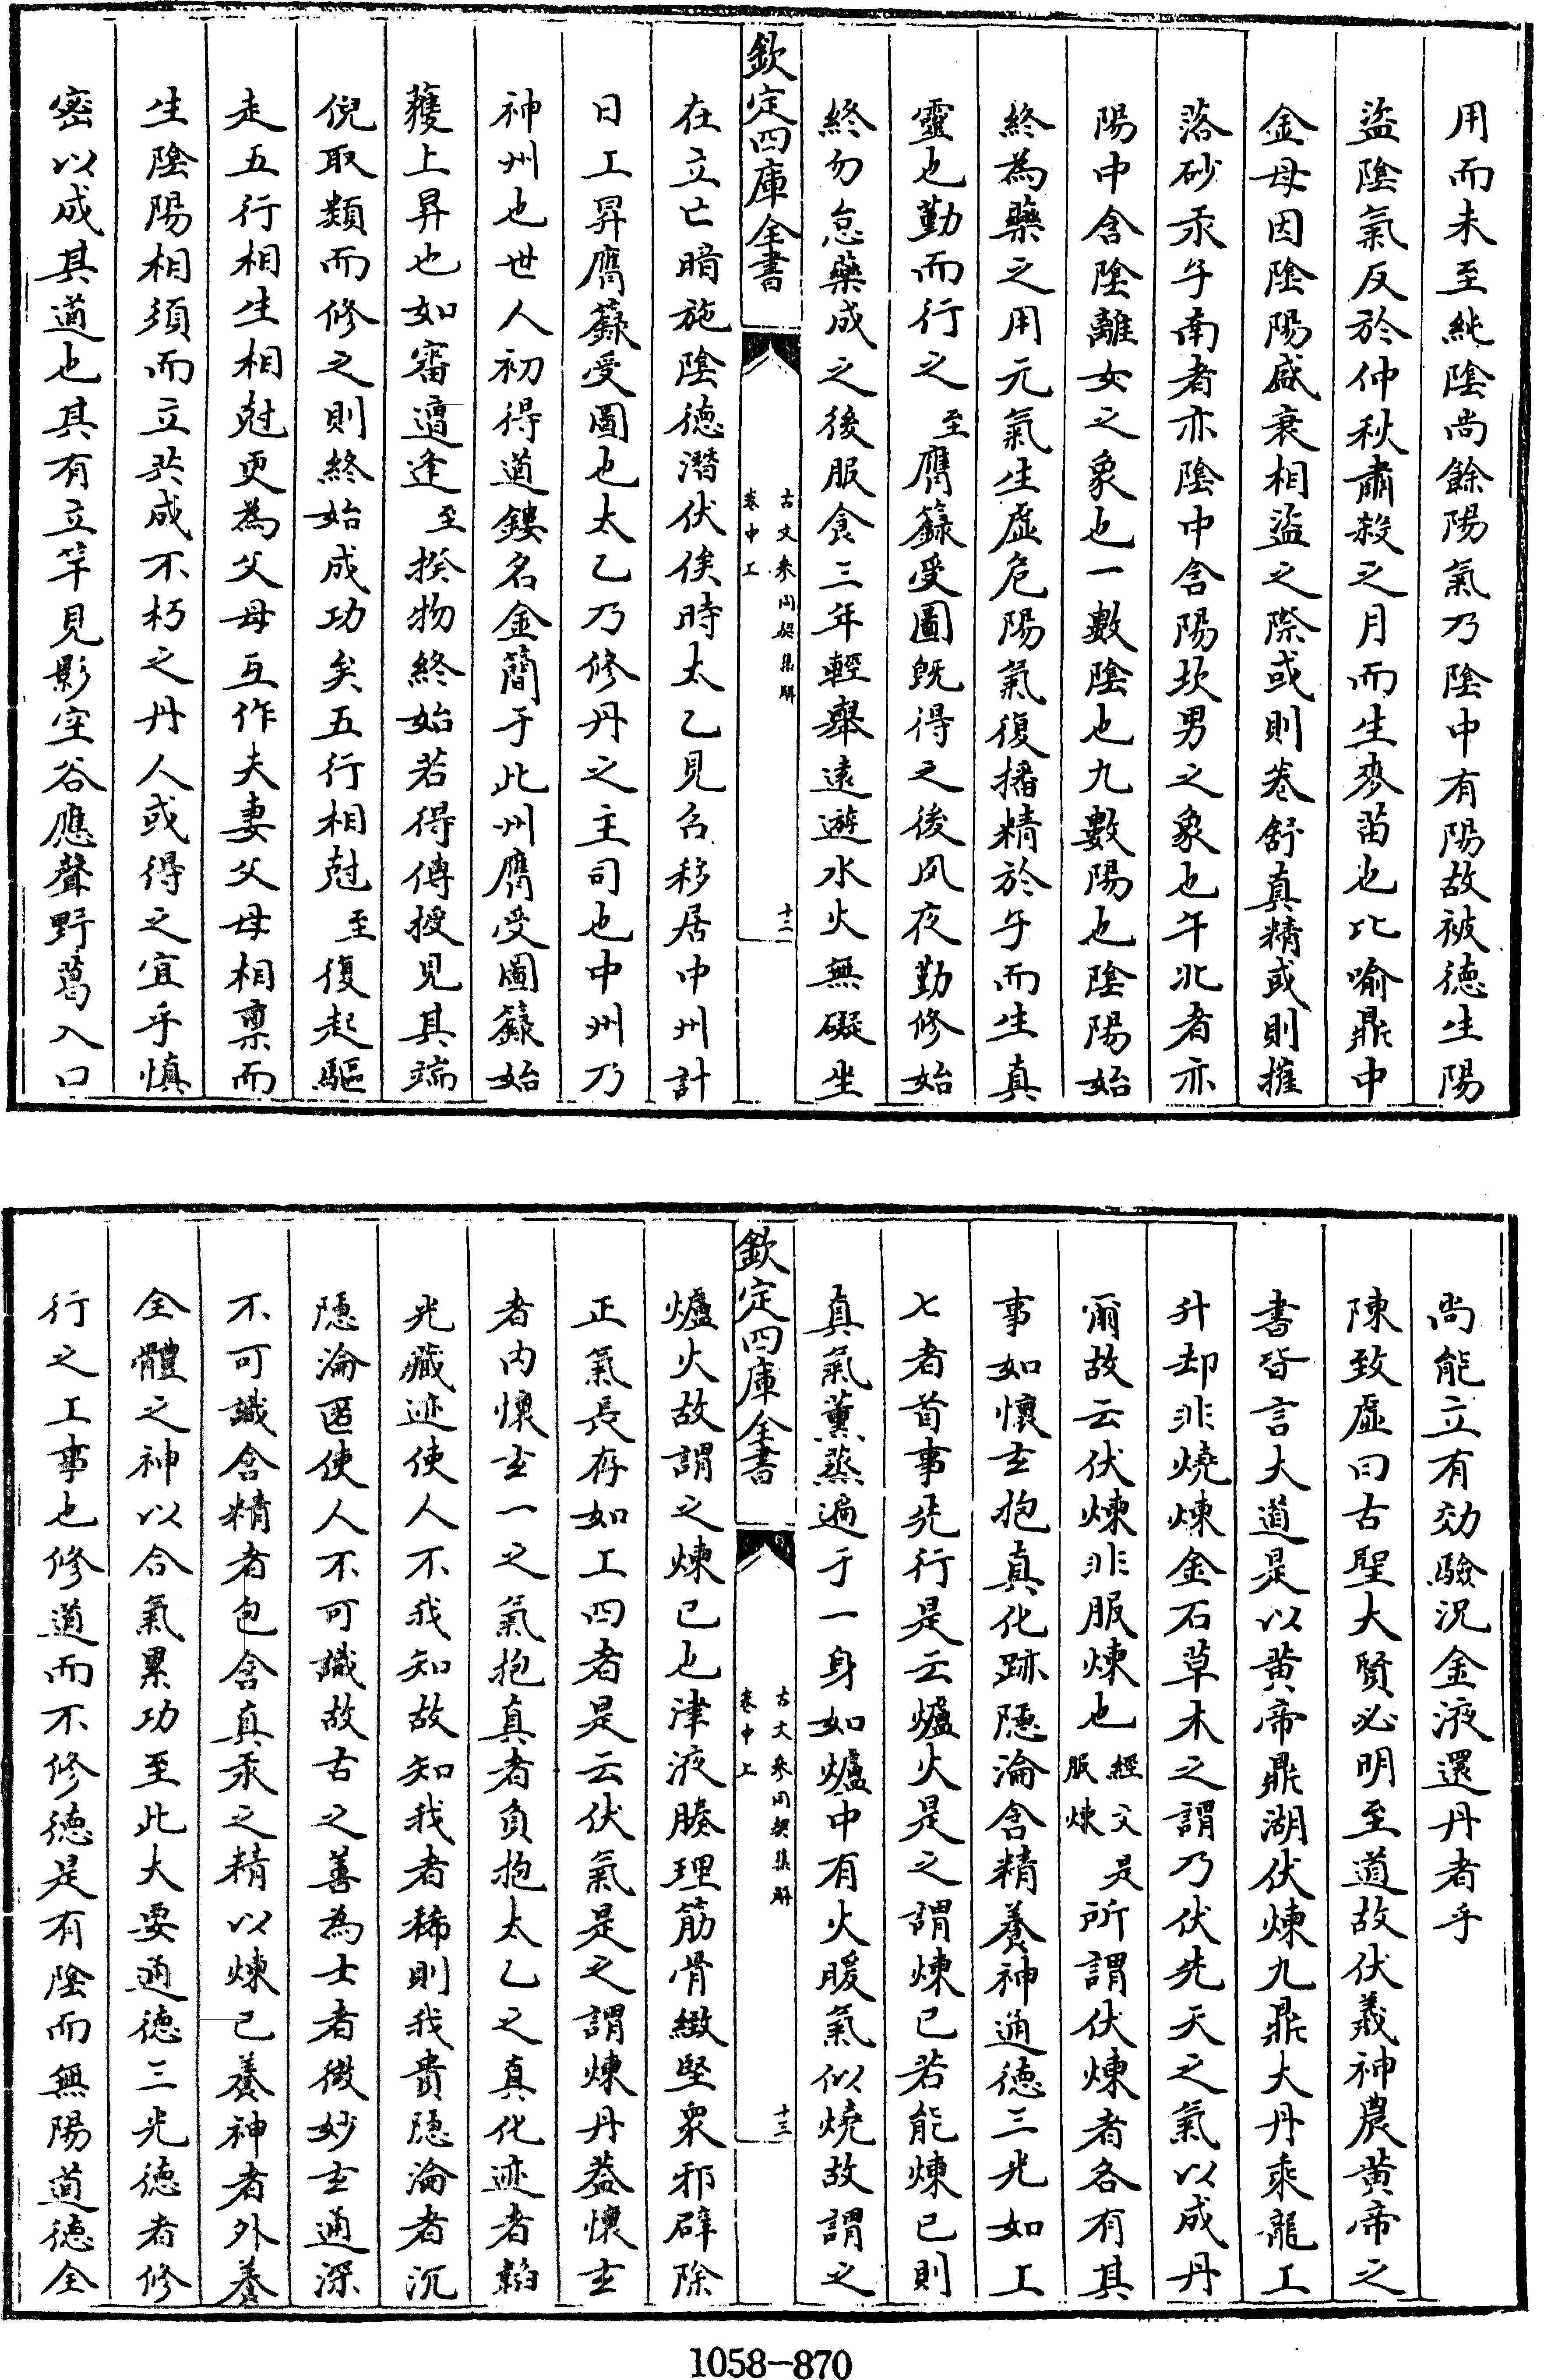 用而未至純陰尚餘陽氣乃陰中有陽故被德生陽
盜陰氣反於仲秋肅殺之月而生麥苗也比喻鼎中
金母因陰陽盛衰相盜之際或則卷舒真精或則摧
落砂汞午南者亦陰中含陽坎男之象也午北者亦
陽中含陰離女之象也一數陰也九數陽也陰陽始
終為藥之用元氣生虛危陽氣復播精於午而生真
靈也勤而行之至膺籙受圖既得之後夙夜勤修始
終勿怠藥成之後服食三年輕舉遠遊水火無礙坐
欽定四庫全書
古文參同契集解
卷中上
十二
在立亡暗施陰德潛伏俟時太乙見召移居中州計
日工昇膺籙受圖也太乙乃修丹之主司也中州乃
神州也世人初得道鏤名金簡于此州膺受圖籙始
獲上昇也如審遭逢至揆物終始若得傳授見其端
倪取類而修之則終始成功矣五行相尅至復起驅
走五行相生相尅更為父母互作夫妻父母相稟而
生陰陽相須而立共成不朽之丹人或得之宜乎慎
密以成其道也其有立竿見影空谷應聲野葛入口
尚能立有効驗況金液還丹者乎
陳致虛曰古聖大賢必明至道故伏羲神農黄帝之
書皆言大道是以黄帝鼎湖伏煉九鼎大丹乘龍工
升却非燒煉金石草木之謂乃伏先天之氣以成丹
爾故云伏煉非服煉也經文是服煉所謂伏煉者各有其
事如懷玄抱真化跡隱淪含精養神通德三光如工
七者首事先行是云爐火是之謂煉已若能煉已則
真氣薰蒸遍于一身如爐中有火暖氣似燒故謂之
欽定四庫全書
古文參同契集解
卷中上
十三
爐火故謂之煉已也津液腠理筋骨緻堅衆邪辟除
正氣長存如工四者是云伏氣是之謂煉丹葢懷玄
者内懷玄一之氣抱真者負抱太乙之真化迹者韜
光藏迹使人不我知故知我者稀則我貴隱淪者沉
隱淪匿使人不可識故古之善為士者微妙玄通深
不可識含精者包含真汞之精以煉已養神者外養
全體之神以合氣累功至此大要通德三光德者修
行之工事也修道而不修德是有陰而無陽道德全
1058-870